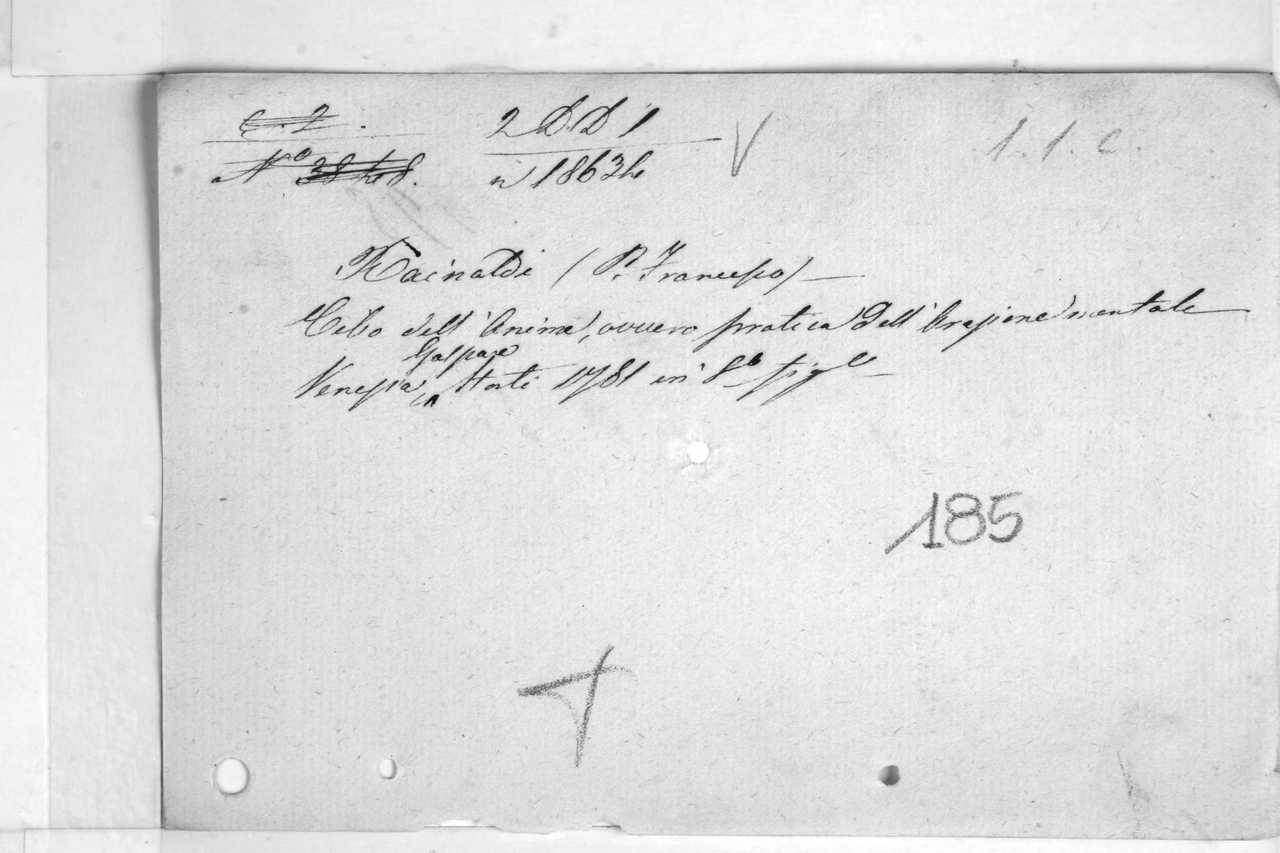 C. 2. 2 D.D 1 V 1.1.c.
N.º n 18634
Rainaldi (P. Francesco) —
Cibo dell'Anima, ovvero pratica dell'Orazione mentale
Venezia, Gaspare Storti 1781 in 8º fig.e
185